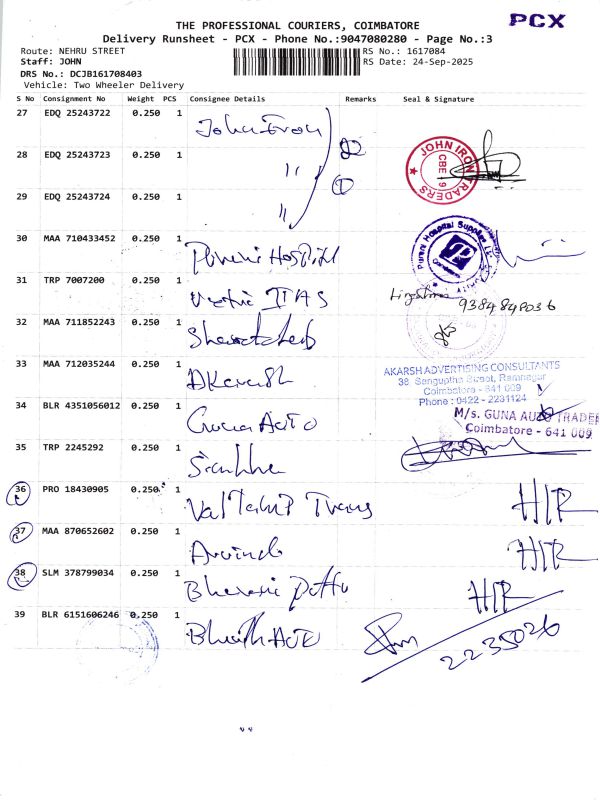 PCX
THE PROFESSIONAL COURIERS, COIMBATORE
Delivery Runsheet - PCX - Phone No.:9047080280 - Page No.:3
Route: NEHRU STREET
RS No.: 1617084
Staff: JOHN
RS Date: 24-Sep-2025
DRS No.: DCJB161708403
Vehicle: Two Wheeler Delivery
S No Consignment No Weight PCS Consignee Details Remarks Seal & Signature
27 EDQ 25243722 0.250 1 John Iron
28 EDQ 25243723 0.250 1 "
JOHN IRON TRADERS
CBE 9
29 EDQ 25243724 0.250 1 "
30 MAA 710433452 0.250 1 Purani Hospital
Purani Hospital Supplies
31 TRP 7007200 0.250 1 IIAS
9384848036
32 MAA 711852243 0.250 1
33 MAA 712035244 0.250 1 Akarsh
AKARSH ADVERTISING CONSULTANTS
38, Sengupta Street, Ramnagar
Coimbatore - 641 009
Phone : 0422 - 2231124
34 BLR 4351056012 0.250 1 Guna AUTO
M/s. GUNA AUTO TRADER
Coimbatore - 641 009
35 TRP 2245292 0.250 1
36 PRO 18430905 0.250 1 Trans
37 MAA 870652602 0.250 1 Arvind
38 SLM 378799034 0.250 1
39 BLR 6151606246 0.250 1 AUTO
2235026